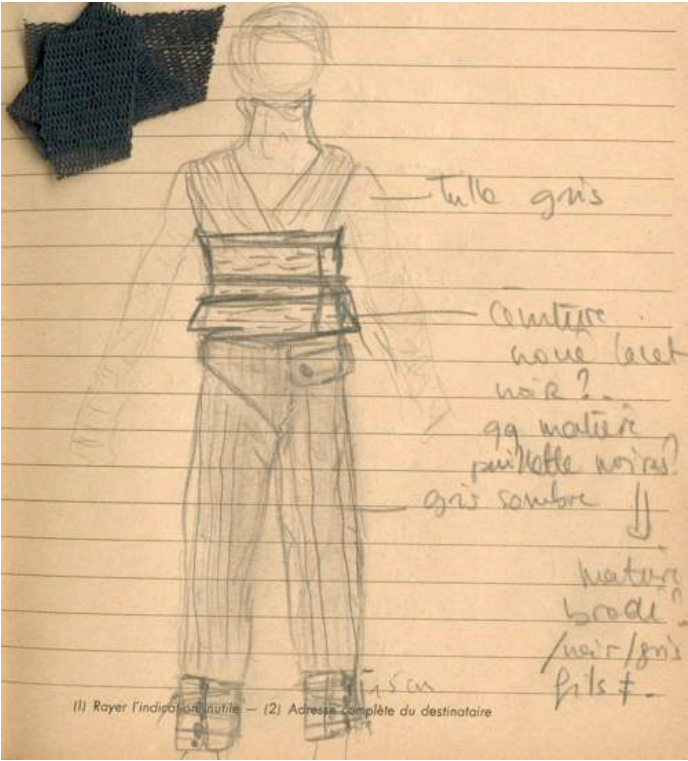 Tulle gris
Ceinture
noué lacet
noir ?
qq matière
paillette noires ?
gris sombre
matière
brodé ?
/noir/gris
fils ≠
(1) Rayer l'indication inutile — (2) Adresse complète du destinataire